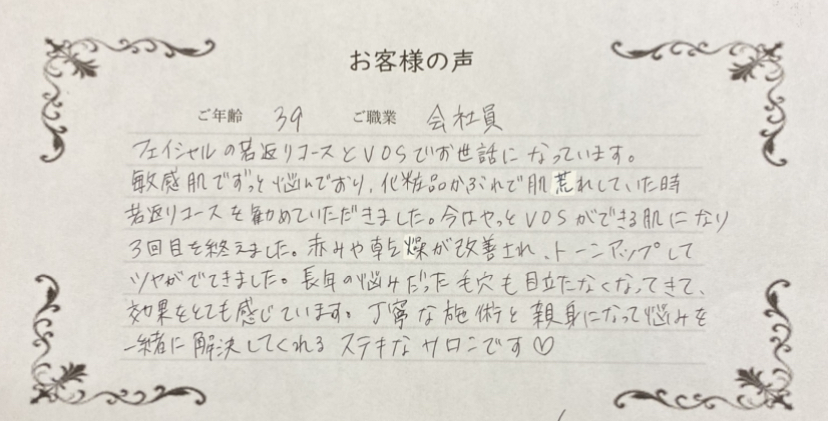 お客様の声
ご年齢 39 ご職業 会社員
フェイシャルの若返りコースとVOSでお世話になっています。
敏感肌でずっと悩んでおり、化粧品かぶれで肌荒れしていた時
若返りコースを勧めていただきました。今はやっとVOSができる肌になり
3回目を終えました。赤みや乾燥が改善され、トーンアップして
ツヤがでてきました。長年の悩みだった毛穴も目立たなくなってきて、
効果をとても感じています。丁寧な施術と親身になって悩みを
一緒に解決してくれるステキなサロンです♡